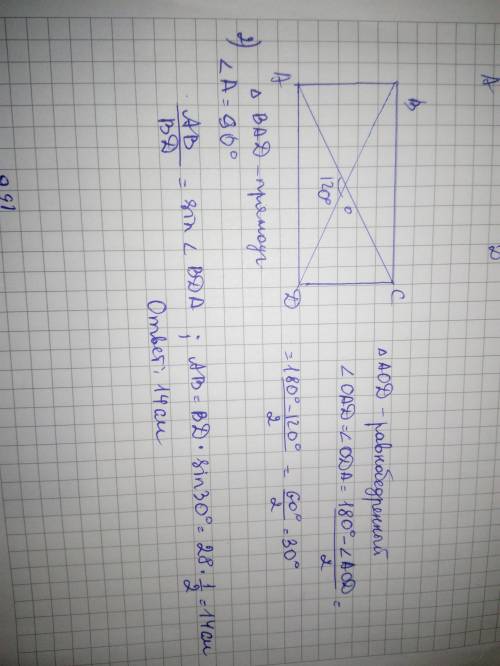 A D
B C
O
120°
A D
△ AOD – равнабедренный
∠OAD = ∠ODA = (180° - ∠AOD)/2 =
= (180° - 120°)/2 = 60°/2 = 30°
2) △ BAD – прямоуг
∠A = 90°
AB/BD = sin ∠ BDA ; AB = BD · sin 30° = 28 · 1/2 = 14 см
Ответ: 14 см